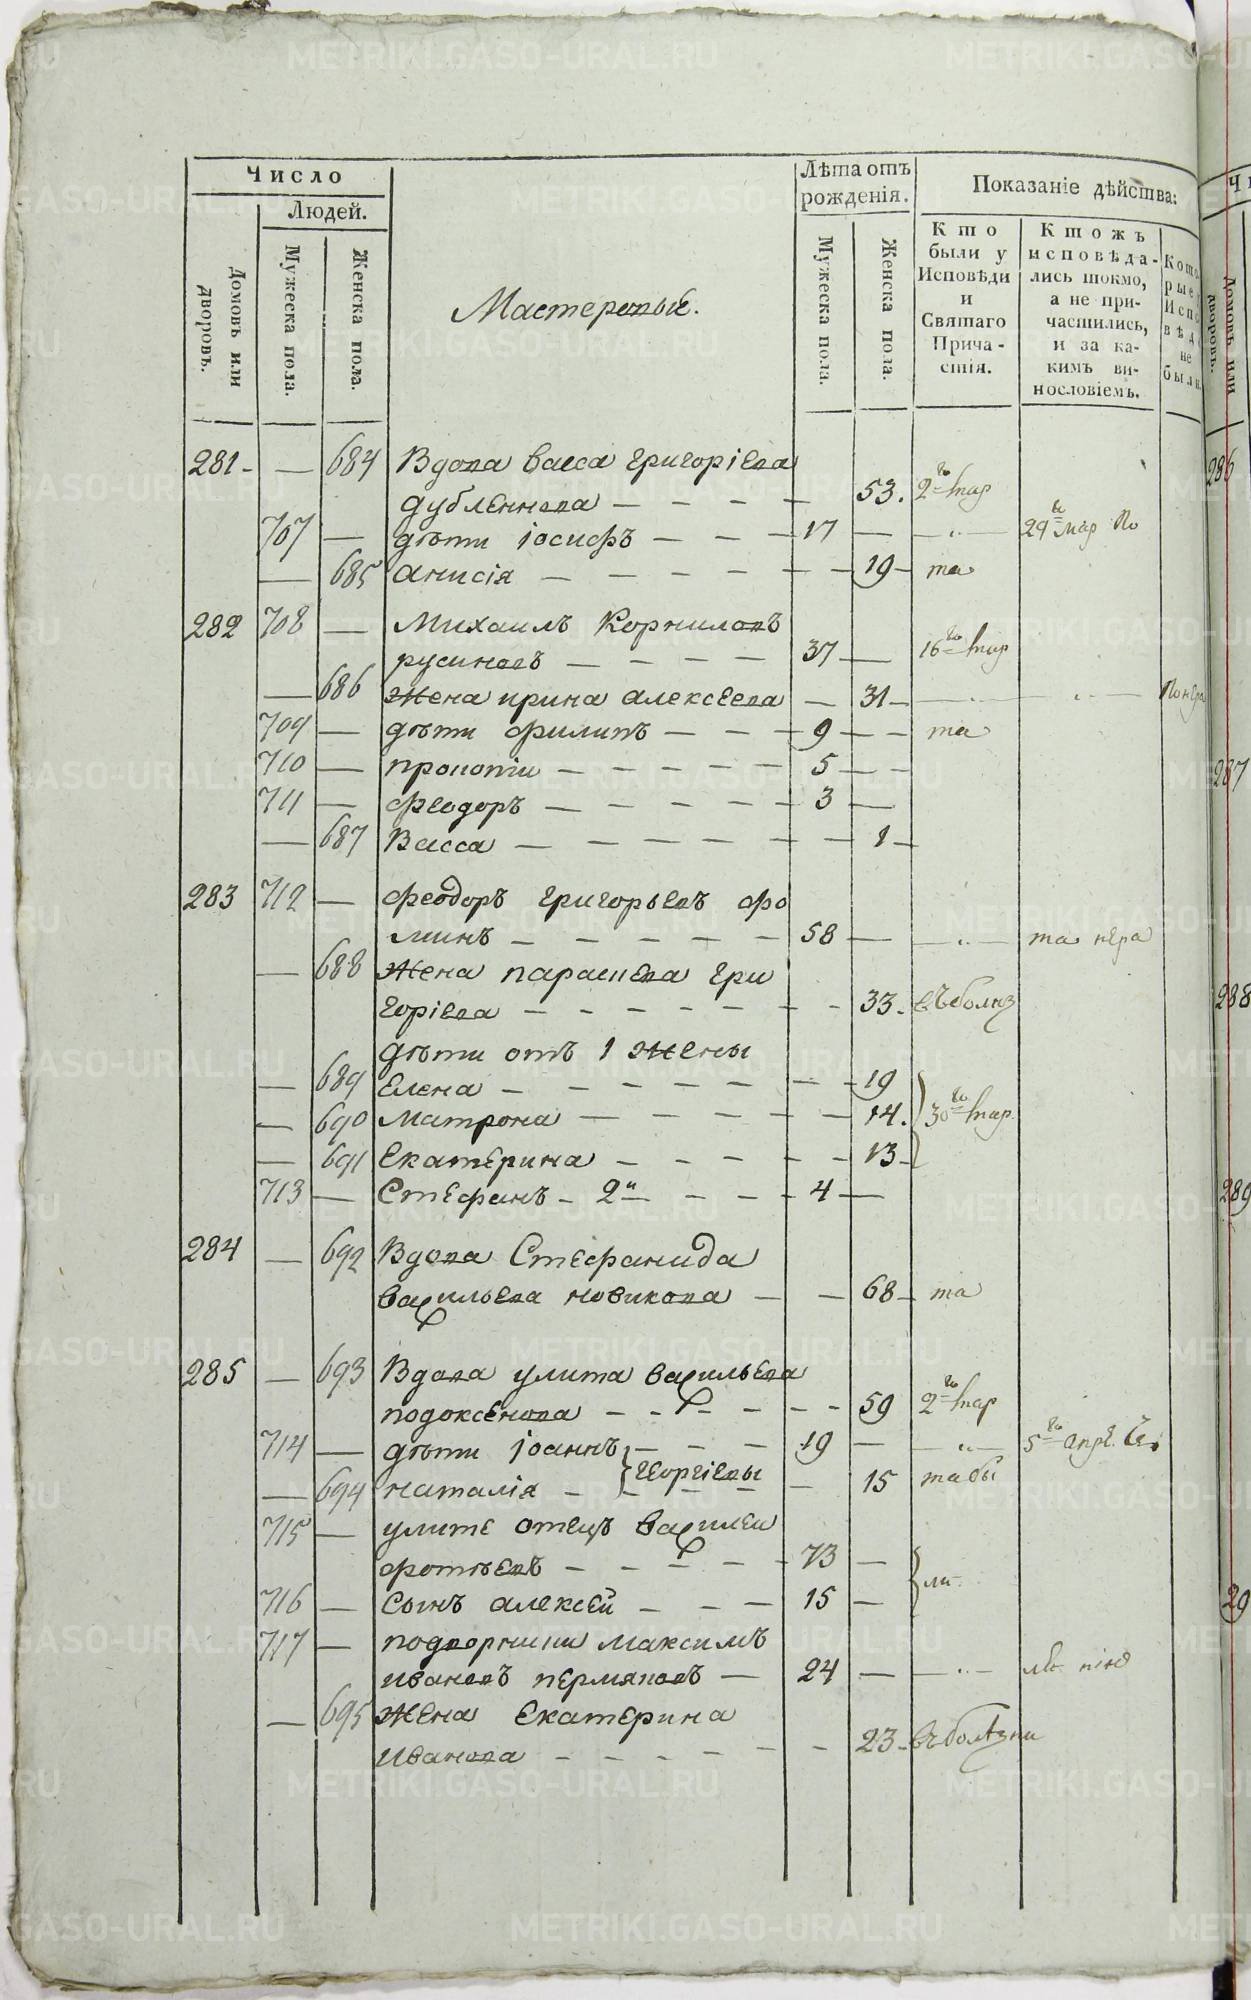 METRIKI.GASO-URAL.RU
Число
Людей.
Домовъ или дворовъ.
Мужеска пола.
Женска пола.
Мастеровые.
Лѣта отъ рожденія.
Мужеска пола.
Женска пола.
Показаніе дѣйства:
Кто были у Исповѣди и Святаго Прича-стія.
Ктожъ исповѣда-лись токмо, а не при-частились, и за ка-кимъ ви-нословіемъ.
Кото рые Исп вѣд не были
281 - — 684 Вдова Васса Григоріева
Дубленнова — 53. 2го мар
707 — дѣти Іосифъ — 17 — 29го мар по
— 685 Анисія — 19 — та
282 708 — Михаилъ Корниловъ
Русиновъ — 37 — 16го мар
— 686 Жена Ирина Алексеева — 31 —
709 — дѣти Филипъ — 9 — та
710 — Прокопіи — 5 —
711 — Феодоръ — 3 —
— 687 Васса — 1 —
283 712 — Феодоръ Григорьевъ Фо
минъ — 58 — та нера
— 688 Жена Параскева Гри
горіева — 33. въ болнз
дѣти отъ 1 Жены
— 689 Елена — 19
— 690 Матрона — 14. 30го мар.
— 691 Екатерина — 13
713 — Стефанъ — 2й — 4 —
284 — 692 Вдова Стефанида
Васильева Новикова — 68 — та
285 — 693 Вдова Улита Васильева
Подоксенова — 59 2го мар
714 — дѣти Іоаннъ — 19 — 5го апре.
— 694 Наталія — Георгіевы — 15 та бы
715 — Улите отецъ Василеи
Фотѣевъ — 73 —
716 — Сынъ Алексей — 15 —
717 — подворники Максимъ
Ивановъ Пермяковъ — 24 —
— 695 Жена Екатерина
Иванова — 23 — въ болѣзни
286
287
288
289
29